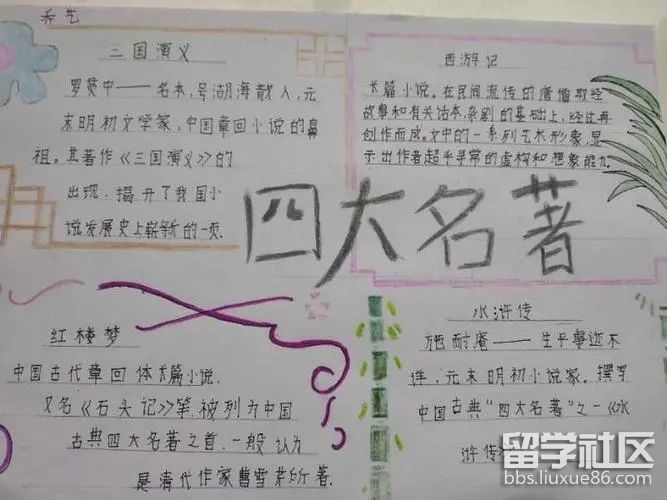 三国演义
罗贯中——名本,号湖海散人,元
末明初文学家,中国章回小说的鼻
祖。其著作《三国演义》的
出现,揭开了我国小
说发展史上崭新的一页.
西游记
长篇小说。在民间流传的唐僧取经
故事和有关话本,杂剧的基础上,经过再
创作而成。文中的一系列艺术形象,显
示出作者超乎寻常的虚构和想象能力
四大名著
红楼梦
中国古代章回体长篇小说.
又名《石头记》等,被列为中国
古典四大名著之首.一般认为
是清代作家曹雪芹所著.
水浒传
施耐庵——生平事迹不
详,元末明初小说家。撰写
中国古典“四大名著”之一《水
浒传》
留学社区
bbs.liuxue86.com